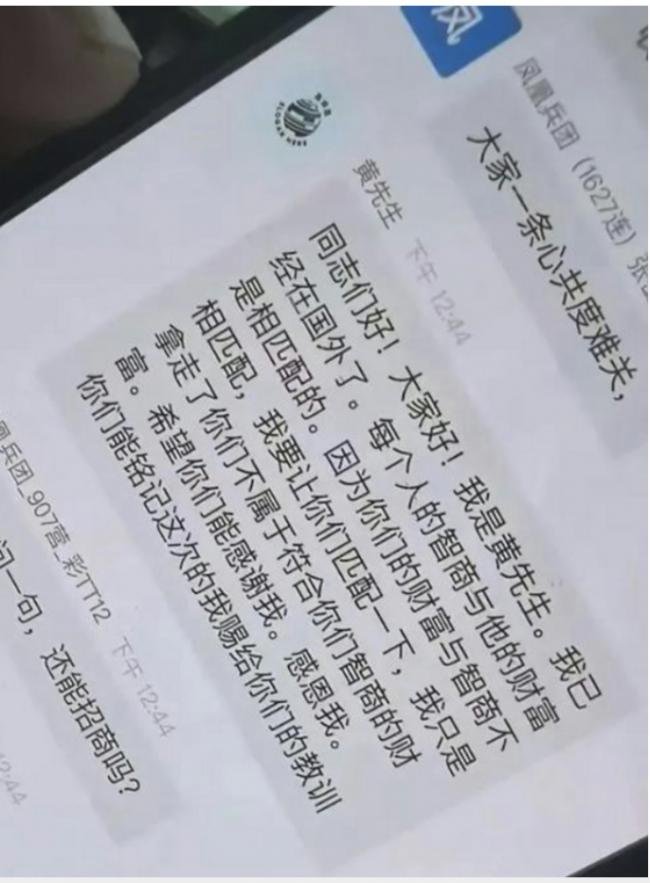 凤
凤凰兵团(1627连)
大家一条心共度难关，
黄先生 下午 12:44
同志们好！大家好！我是黄先生。我已
经在国外了。每个人的智商与他的财富
是相匹配的。因为你们的财富与智商不
相匹配，我要让你们匹配一下，我只是
拿走了你们不属于符合你们智商的财
富。希望你们能感谢我。感恩我。
你们能铭记这次的我赐给你们的教训
凰兵团_907营_彩TT12 下午 12:44
问一句，还能招商吗？
12:44